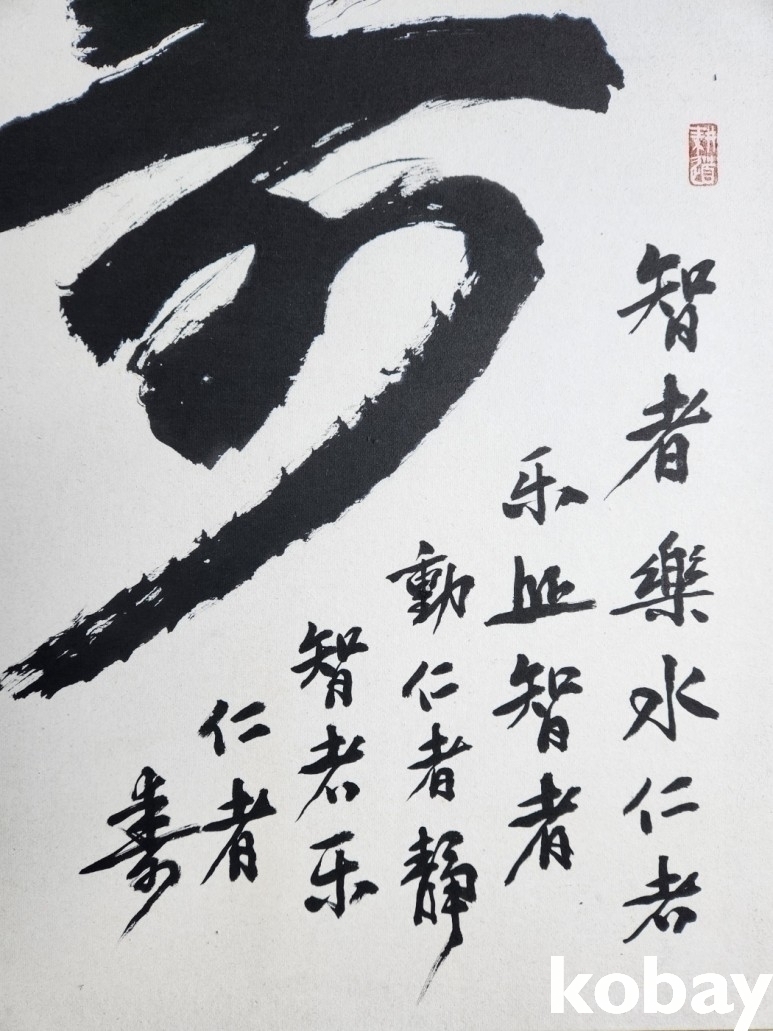 耕道
智者樂水仁者
乐丠智者
動仁者靜
智者乐
仁者
寿
kobay